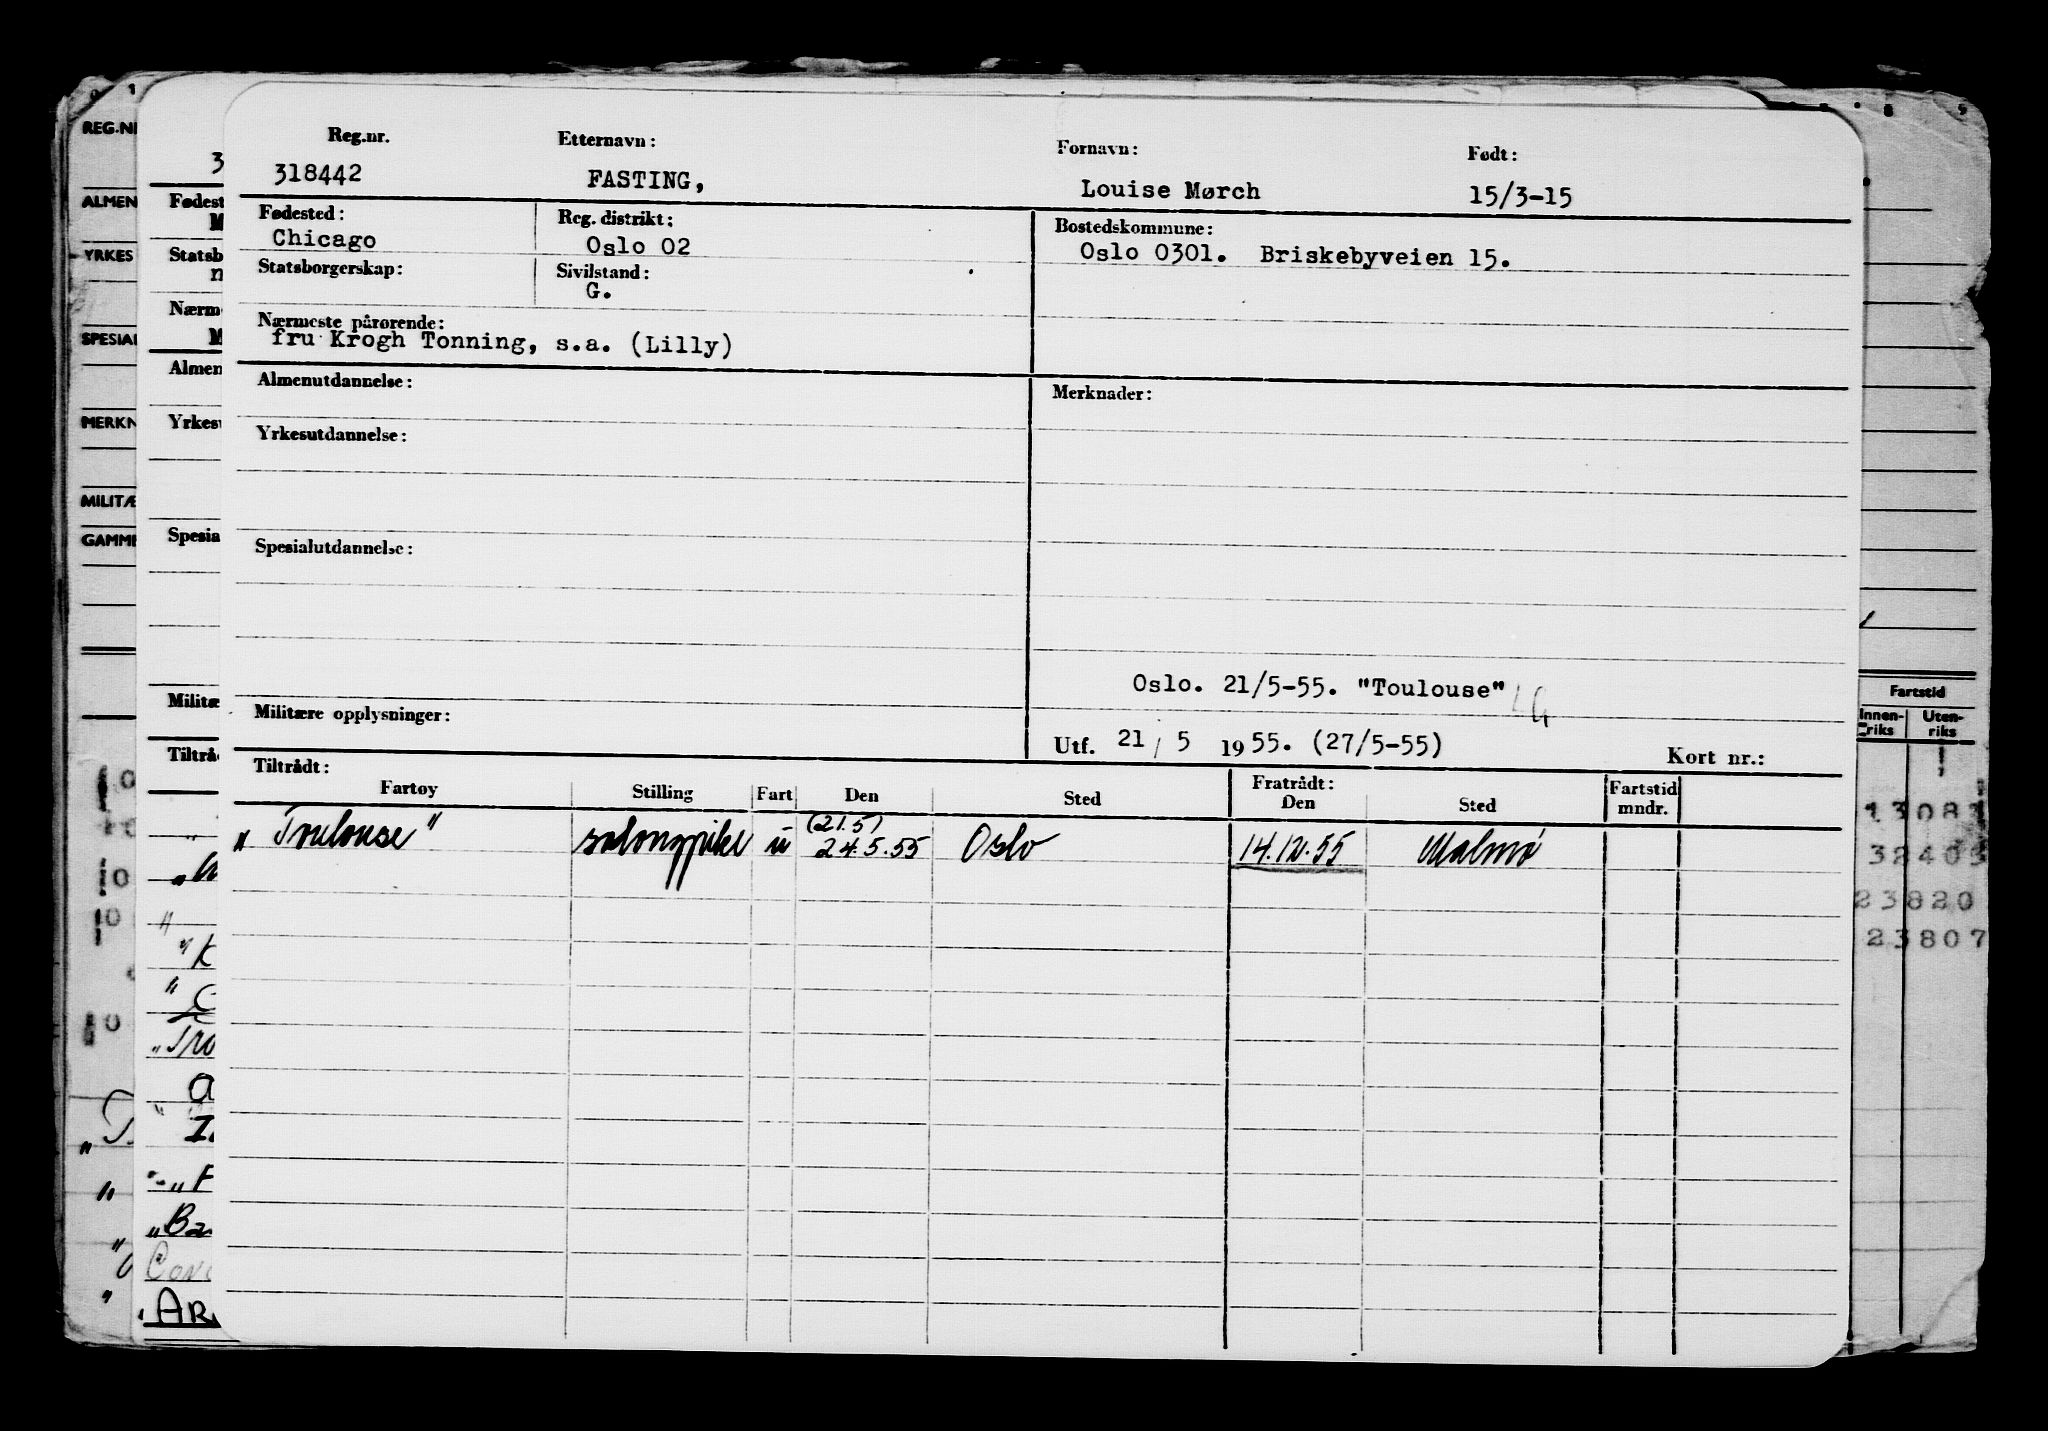 Reg.nr. Etternavn: Fornavn: Født:
318442 FASTING, Louise Mørch 15/3-15
Fødested: Reg. distrikt: Bostedskommune:
Chicago Oslo 02 Oslo 0301. Briskebyveien 15.
Statsborgerskap: Sivilstand:
G.
Nærmeste pårørende:
fru Krogh Tonning, s.a. (Lilly)
Almenutdannelse: Merknader:
Yrkesutdannelse:
Spesialutdannelse:
Oslo. 21/5-55. "Toulouse"
Militære opplysninger:
Utf. 21/5 1955. (27/5-55) Kort nr.:
Tiltrådt: Fratrådt:
Fartøy Stilling Fart Den Sted Den Sted Fartstid mndr.
(21.5)
"Toulouse" salongpike u 24.5.55 Oslo 14.12.55 Malmö
REG.NR
ALMEN
YRKES
SPESIAL
MERKN
MILITÆ
GAMME
3
Fødest
Statsb
Nærm
Almen
Yrkesu
Spesia
Militæ
Tiltråd
Fartstid
Innenriks Utenriks
13081
32405
23820
23807